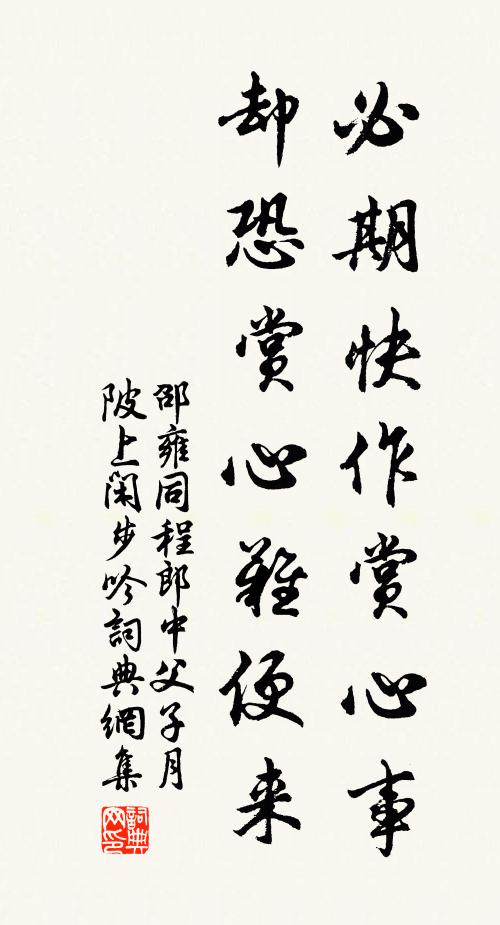 必期快作赏心事
却恐赏心难便来
邵雍同程郎中父子月
陂上閑步吟詞典網集
詞典網印